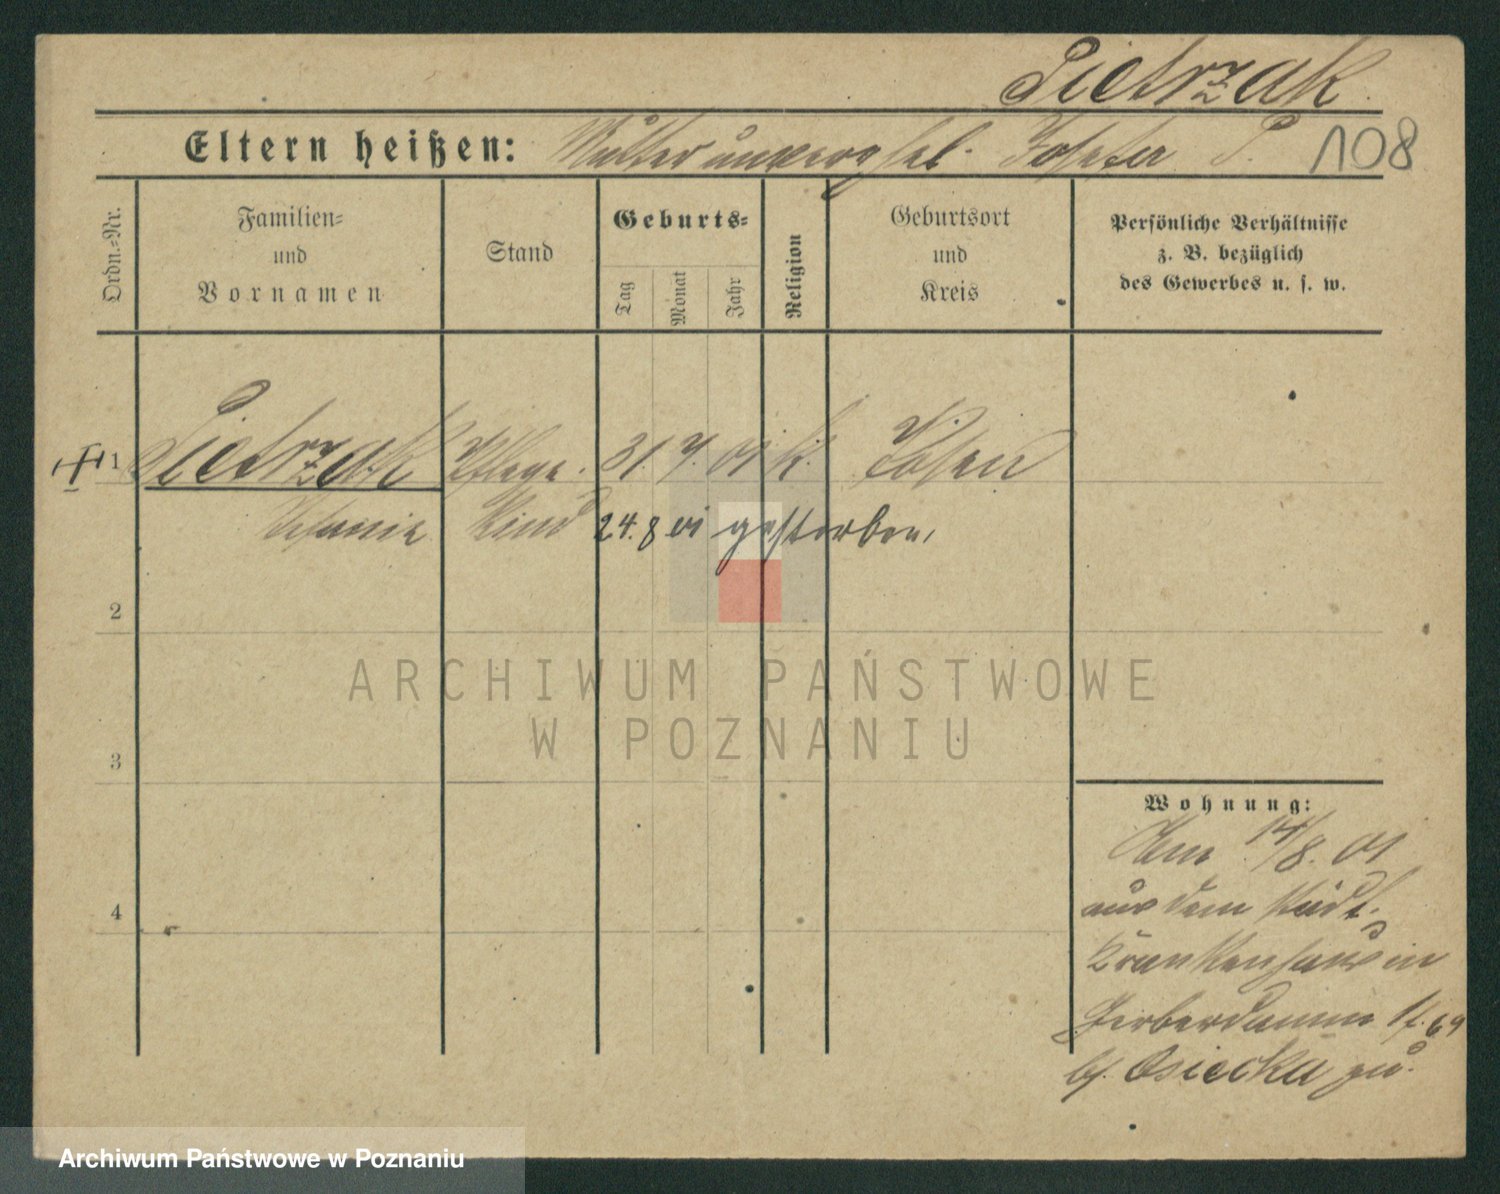 Pietrzak
Eltern heißen: Mutter unverehel. Josefa P. 108
Ordn.=Nr.
Familien=
und
Vornamen
Stand
Geburts=
Tag
Monat
Jahr
Religion
Geburtsort
und
Kreis
Persönliche Verhältnisse
z. B. bezüglich
des Gewerbes u. s. w.
1 Pietrzak Pflege. 31. 7. 01 k. Posen
Stefanie Kind 24. 8 01 gestorben,
2
3
4
Wohnung:
Am 14/8. 01
aus dem städt.
Krankenhaus in
Gerberdamm
b. Osiecka zu.
ARCHIWUM PAŃSTWOWE
W POZNANIU
Archiwum Państwowe w Poznaniu